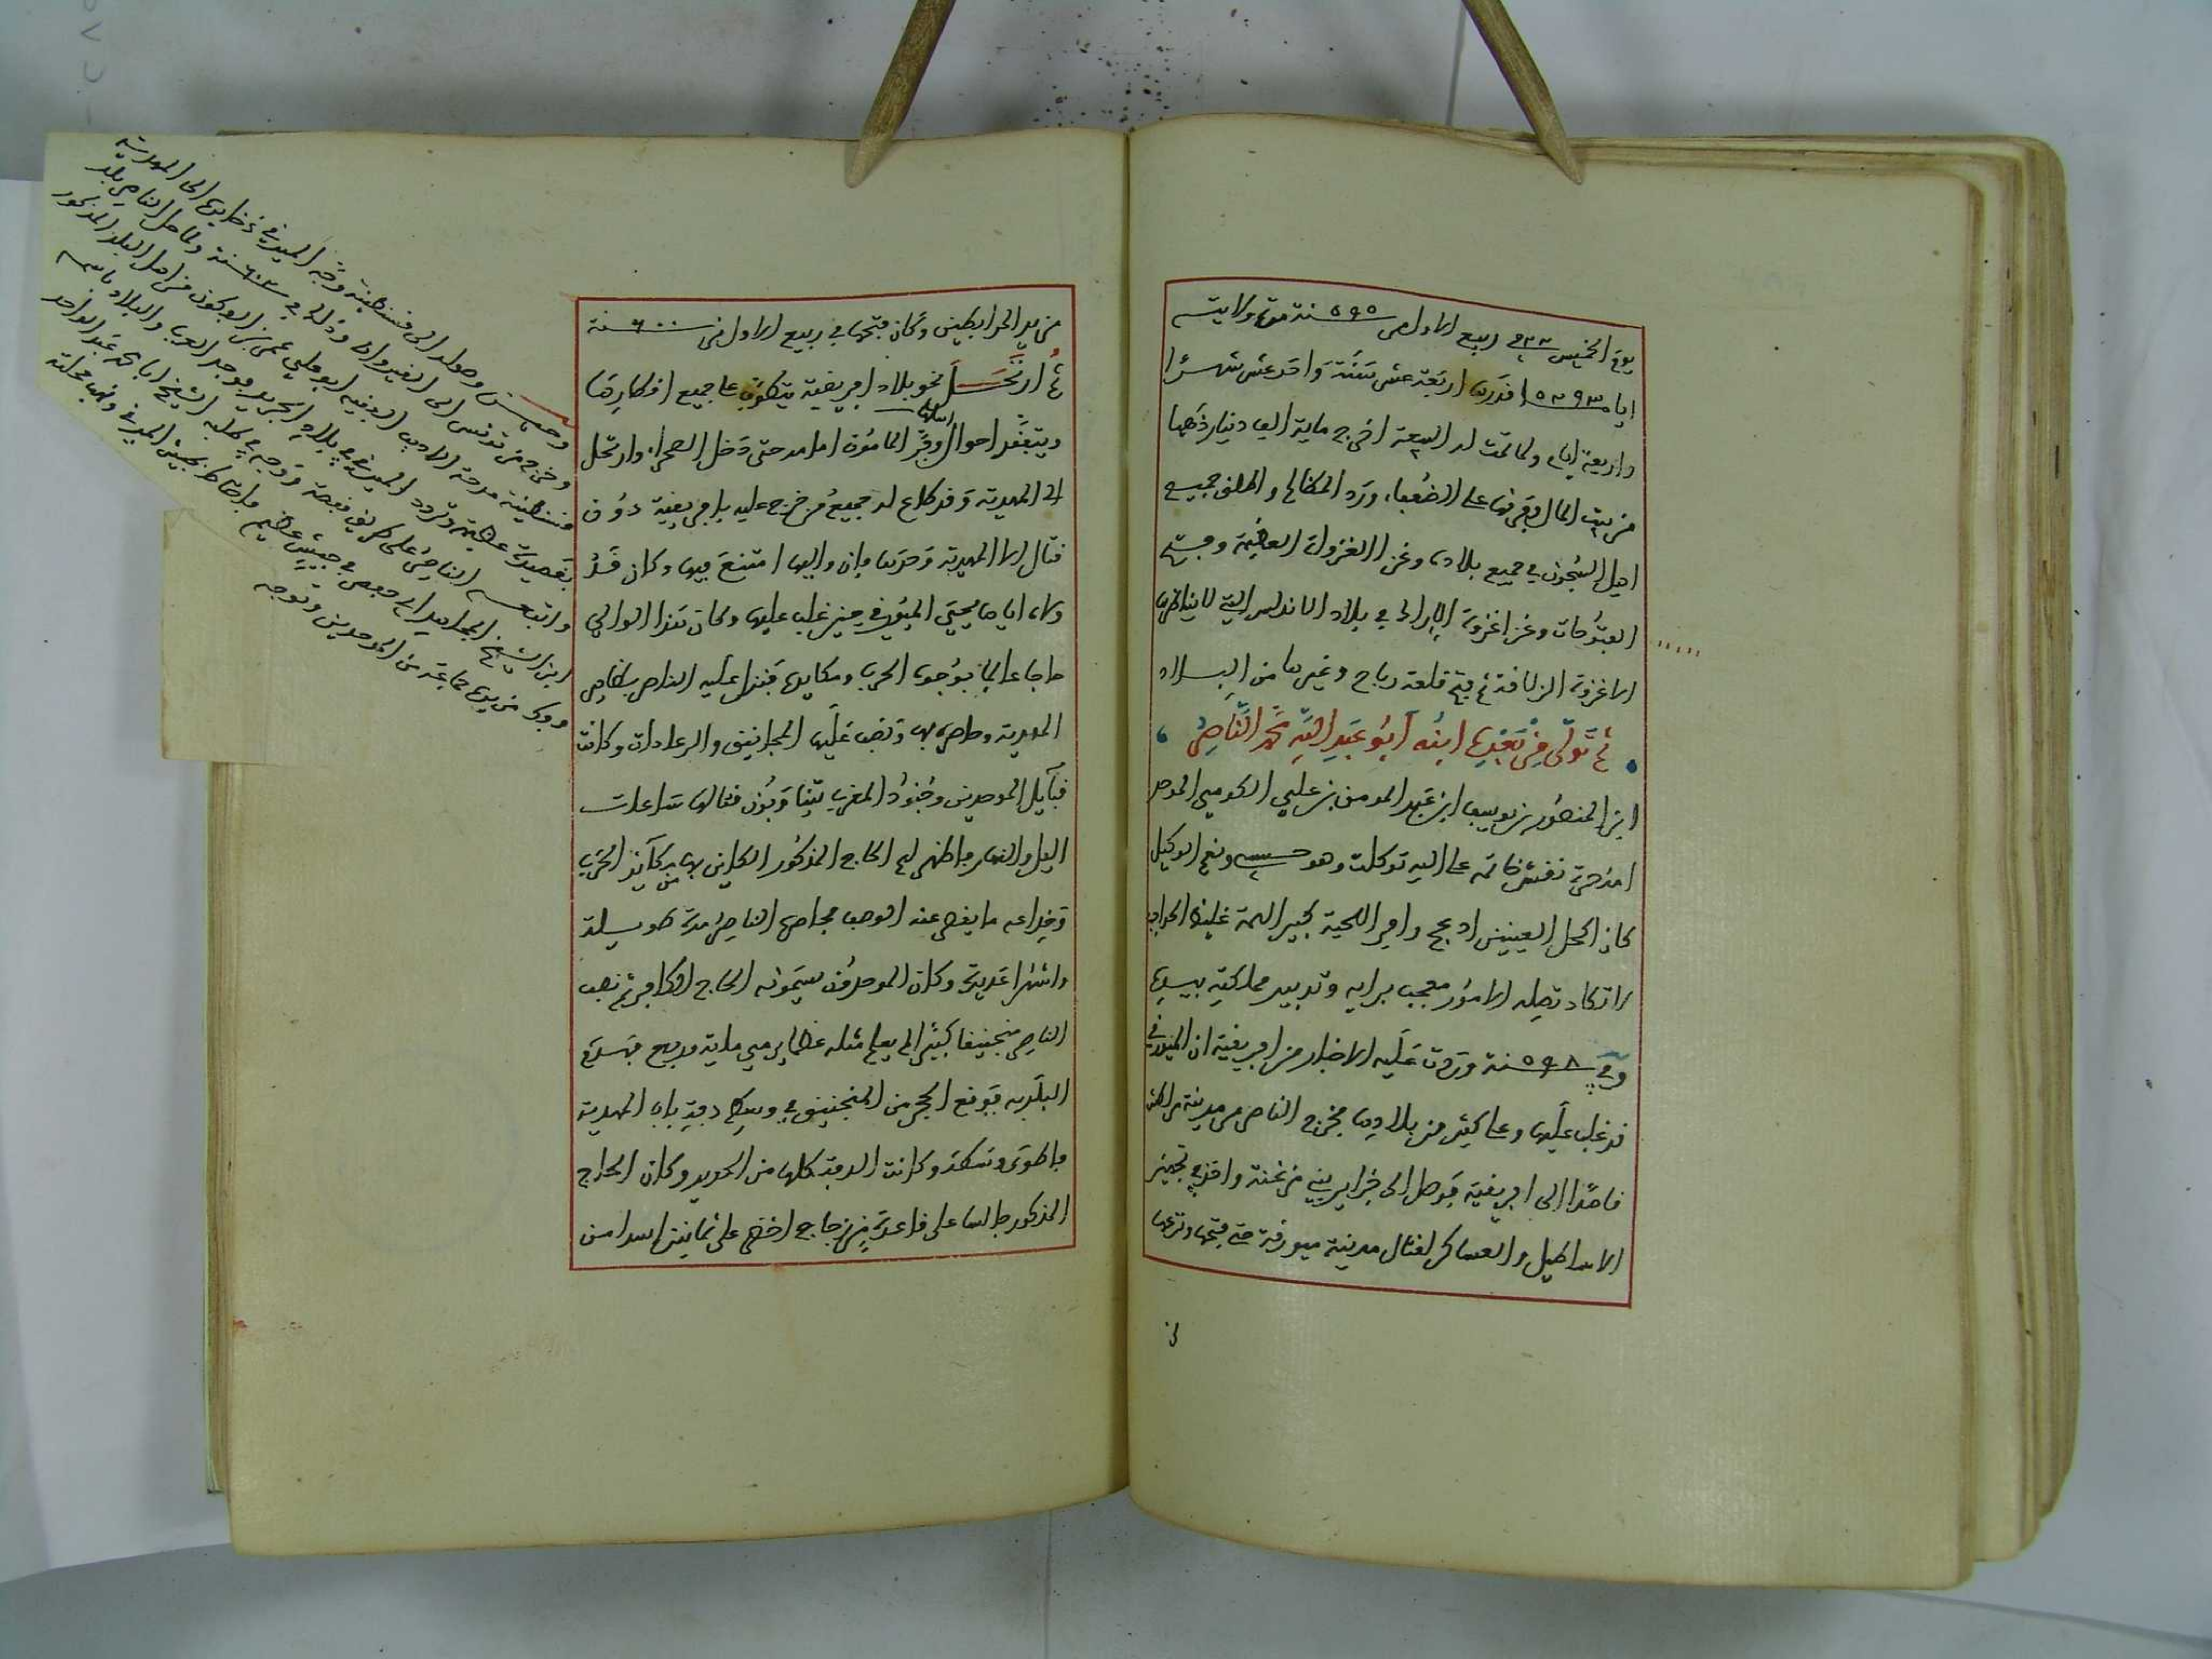 يوم الخميس ٢٢ في ربيع الاول من ٥٩٥ سنة مدة ولايته
اربعة عشر سنة واحد عشر شهرا
واربعة ايام ولما تمت له البيعة اخرج ماية الف دينار ذهبا
من بيت المال ففرقها على الضعفاء ورد المظالم واطلق جميع
اهل السجون في جميع بلاده وغزا الغزوات العظيمة وفتح
الفتوحات وغزا غزوة الارك في بلاد الاندلس التي لا يناظرها
الا غزوة الزلاقة ثم فتح قلعة رباح وغيرها من البلاد
ثم تولى من بعده ابنه ابو عبد الله محمد الناصر
ابن المنصور بن يوسف ابن عبد المومن بن علي الكومي الموحد
امه حرة نقش خاتمه على الله توكلت وهو حسبي ونعم الوكيل
كان اكحل العينين ادعج وافر اللحية كبير الهمة غليظ الحجاب
لا تكاد تصله الامور معجب برايه وتدبير مملكته بيده
وفي ٥٩٨ سنة وردت عليه الاخبار من افريقية ان الميورفي
قد غلب عليها وعلى كثير من بلادها فخرج الناصر من مدينة مراكش
قاصدا الى افريقية فوصل الى جزاير بني مزغنة واخذ في تجهيز
الاساطيل والعساكر لقتال مدينة ميورقة حتى فتحها ونزعها
من
من يد المرابطين وكان فتحها في ربيع الاول من ٦٠٠ سنة
ثم ارتحل نحو بلاد افريقية يتطوف على جميع اقطارها
ويتفقد احوال اهلها وفر امامه حتى دخل الصحراء وارتحل
الى المهدية وقد طاع له جميع من خرج عليه بافريقية دون
قتال الا المهدية وحدها فان واليها امتنع فيها وكان قد
ولاه اياها يحيى الميورفي حين غلب عليها وكان هذا الوالي
حاجا عالما بوجوه الحرب ومكايدها فنزل عليه الناصر بظاهر
المهدية وحاصرها ونصب عليها المجانيق والرعادات وكانت
قبايل الموحدين وجنود المغرب يتناوبون قتالها ساعات
اليل والنهار فاظهر لهم الحاج المذكور الكاين بها من مكايد الحرب
وخداعه ما يقصر عنه الوصف فحاصرها الناصر مدة طويلة
واشهرا عديدة وكان الموحدون يسمونه الحاج الكافر ثم نصب
الناصر منجنيقا كبيرا لم يعلم مثله عظما يرمي ماية وربع فهدم
البلد به فوقع الحجر من المنجنيق في وسط دفة باب المهدية
وكانت الدفة كلها من الحديد وكان الحاج
المذكور جالسا على قاعدة من زجاج اخضر على تماثيل اسدا من
وحصن وصولد الى قسنطينة وجه الميورفي ذخايره الى المهدية
وخرج من تونس الى القيروان وذلك في سنة ولما حل الناصر بلد
قسنطينة مدحه الاديب الفقيه ابو علي عمر بن ابو كون من اهل البلد المذكور
بقصيدة عظيمة وتردد الميورفي في بلاد الجريد فوجد العرب والبلاد
واتبعه الناصر على طريق قفصة ووجه في طلبه الشيخ ابا محمد عبد الواحد
ابن الشيخ المجاهد ابي حفص في جيش عظيم فاحاط بجيش الميورفي ونهب محلته